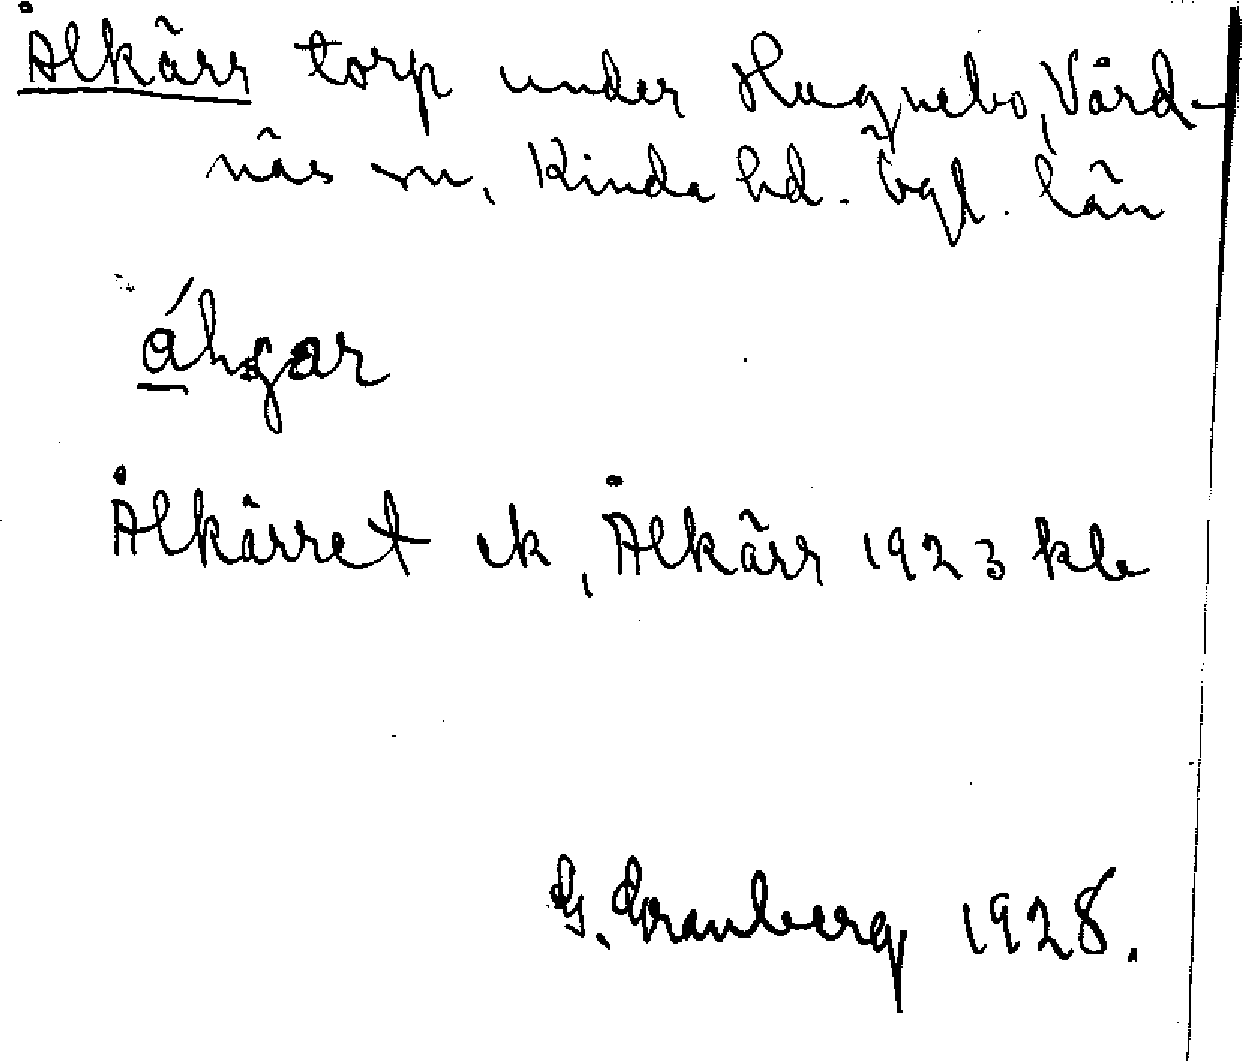 Ålkärr torp under Hugnebo, Vård-
näs sn, Kinda hd. Ögl. län
Ålkärret ek, Ålkärr 1923 kle
G. Granberg 1928.